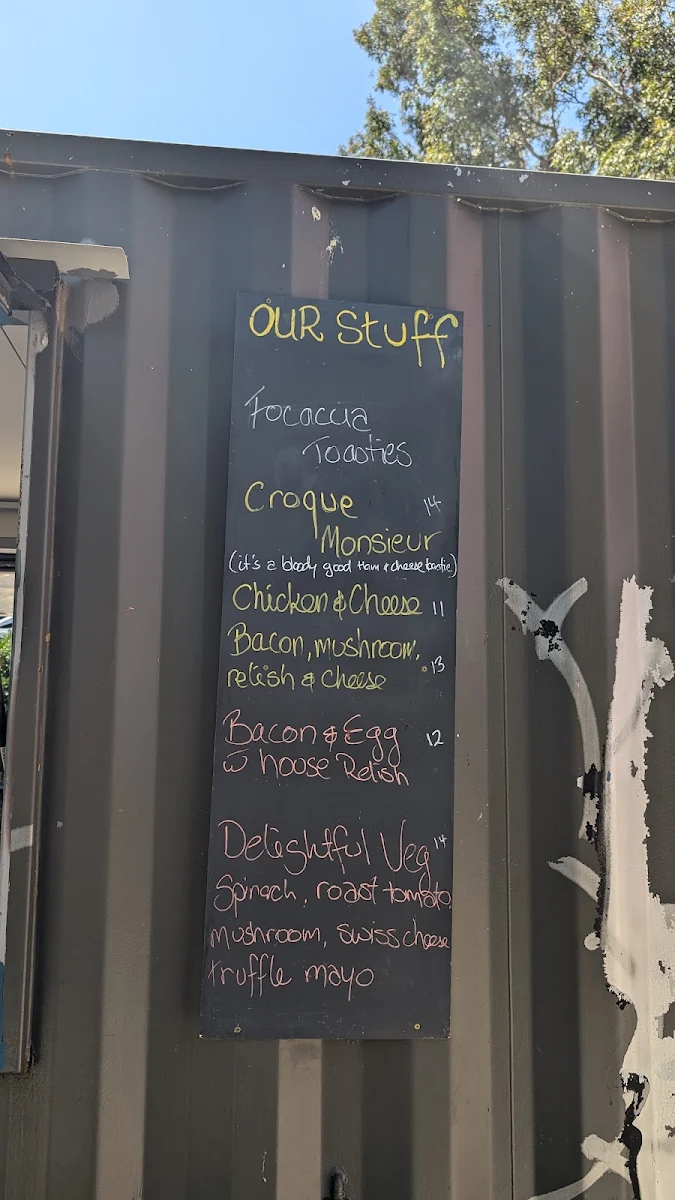 OUR Stuff
Focaccia
Toasties
Croque 14
Monsieur
(it's a bloody good Ham & cheese toastie)
Chicken & Cheese 11
Bacon, mushroom,
relish & cheese 13
Bacon & Egg 12
w hoose Relish
Delightful Veg 14
Spinach, roast tomato
mushroom, swiss cheese
truffle mayo